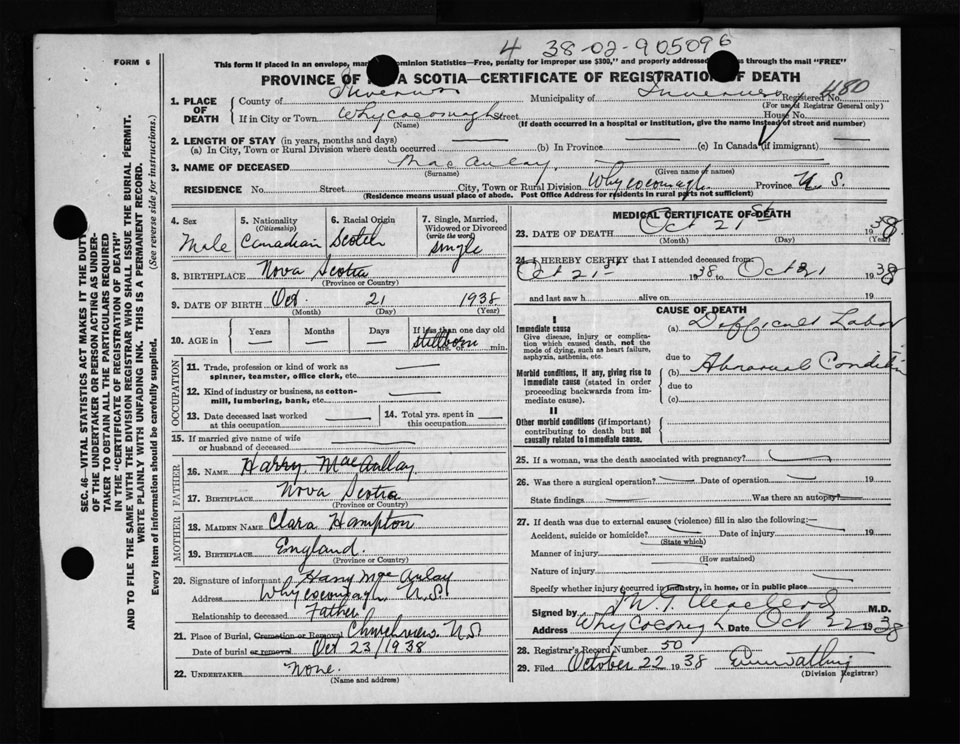 4 38-02-905096
FORM 6
This form if placed in an envelope, Dominion Statistics—Free, penalty for improper use $300," and properly addressed through the mail "FREE"
PROVINCE OF SCOTIA—CERTIFICATE OF REGISTRATION OF DEATH
1. PLACE OF DEATH
County of Inverness Municipality of Inverness Registered No. 480
(For use of Registrar General only)
If in City or Town Whycocomagh Street House No.
(Name) (If death occurred in a hospital or institution, give the name instead of street and number)
2. LENGTH OF STAY (in years, months and days)
(a) In City, Town or Rural Division where death occurred (b) In Province (c) In Canada (if immigrant)
3. NAME OF DECEASED MacAulay
(Surname) (Given name or names)
RESIDENCE No. Street City, Town or Rural Division Whycocomagh Province N.S.
(Residence means usual place of abode. Post Office Address for residents in rural parts not sufficient)
4. Sex
Male
5. Nationality
(Citizenship)
Canadian
6. Racial Origin
Scotch
7. Single, Married, Widowed or Divorced
(write the word)
Single
8. BIRTHPLACE Nova Scotia
(Province or Country)
9. DATE OF BIRTH Oct. 21 1938
(Month) (Day) (Year)
10. AGE in
Years Months Days If less than one day old
Stillborn
hrs. or min.
OCCUPATION
11. Trade, profession or kind of work as
spinner, teamster, office clerk, etc.
12. Kind of industry or business, as cotton-
mill, lumbering, bank, etc.
13. Date deceased last worked
at this occupation
14. Total yrs. spent in
this occupation
15. If married give name of wife
or husband of deceased
FATHER
16. NAME Harry MacAullay
17. BIRTHPLACE Nova Scotia
(Province or Country)
MOTHER
18. MAIDEN NAME Clara Hampton
19. BIRTHPLACE England.
(Province or Country)
20. Signature of informant Harry MacAulay
Address Whycocomagh N.S.
Relationship to deceased Father
21. Place of Burial, Cremation or Removal Churchview N.S.
Date of burial or removal Oct 23/1938
22. UNDERTAKER None.
(Name and address)
MEDICAL CERTIFICATE OF DEATH
23. DATE OF DEATH Oct 21st 1938
(Month) (Day) (Year)
24. I HEREBY CERTIFY that I attended deceased from
Oct 21st 1938 to Oct 21 1938
and last saw h alive on 19
CAUSE OF DEATH
I
Immediate cause
Give disease, injury or complication which caused death, not the mode of dying, such as heart failure, asphyxia, asthenia, etc.
(a) Difficult Labor
due to
Morbid conditions, if any, giving rise to immediate cause (stated in order proceeding backwards from immediate cause).
(b) Abnormal Condition
due to
(c)
II
Other morbid conditions (if important) contributing to death but not causally related to immediate cause.
25. If a woman, was the death associated with pregnancy?
26. Was there a surgical operation? Date of operation 19
State findings Was there an autopsy?
27. If death was due to external causes (violence) fill in also the following:—
Accident, suicide or homicide? Date of injury 19
(State which)
Manner of injury
(How sustained)
Nature of injury
Specify whether injury occurred in industry, in home, or in public place
Signed by M.D.
Address Whycocomagh Date Oct 22 1938
28. Registrar's Record Number 50
29. Filed October 22 1938
(Division Registrar)
SEC. 46—VITAL STATISTICS ACT MAKES IT THE DUTY
OF THE UNDERTAKER OR PERSON ACTING AS UNDER-
TAKER TO OBTAIN ALL THE PARTICULARS REQUIRED
IN THE "CERTIFICATE OF REGISTRATION OF DEATH"
AND TO FILE THE SAME WITH THE DIVISION REGISTRAR WHO SHALL ISSUE THE BURIAL PERMIT.
WRITE PLAINLY WITH UNFADING INK. THIS IS A PERMANENT RECORD.
Every item of information should be carefully supplied. (See reverse side for instructions.)